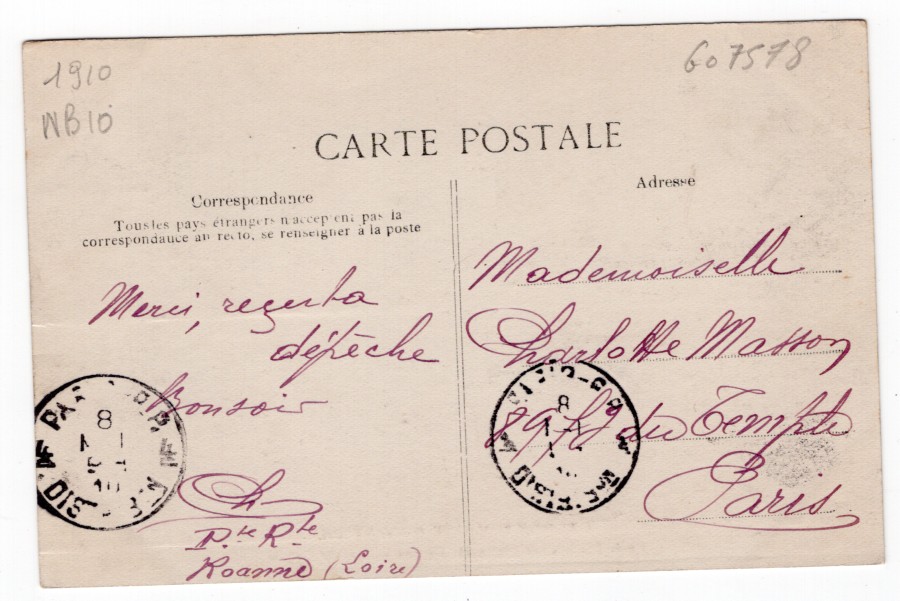 1910
WB10
607578
CARTE POSTALE
Correspondance
Tous les pays étrangers n'acceptent pas la
correspondance au recto, se renseigner à la poste
Merci,
dépêche
Bonsoir
Ch
P.te R.te
Roanne (Loire)
Adresse
Mademoiselle
Charlotte Masson
89 Bd du Temple
Paris
8
8